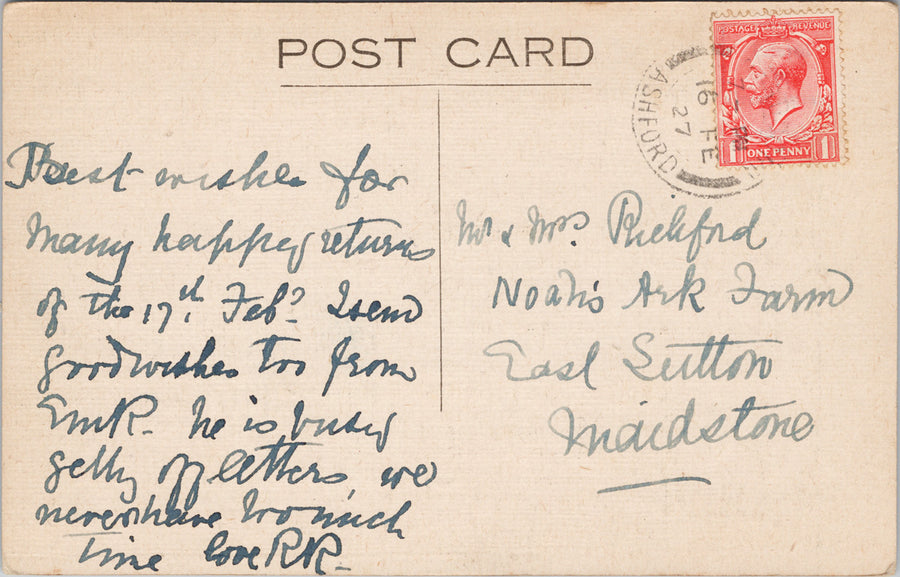 POST CARD
POSTAGE REVENUE
1 ONE PENNY 1
ASHFORD
16 FE
27
Best wishes for
many happy returns
of the 17th Feb? I send
good wishes too from
EmR. he is busy
getting off letters, we
never have too much
time love RR.
Mr & Mrs. Pickford
Noah's Ark Farm
East Sutton
Maidstone